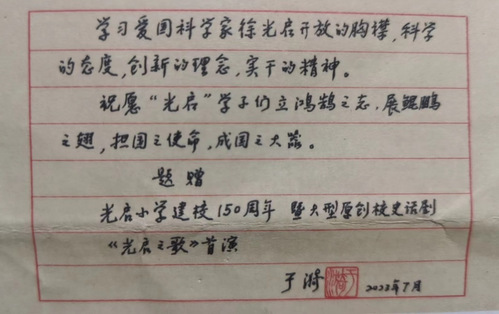 学习爱国科学家徐光启开放的胸襟,科学
的态度,创新的理念,实干的精神。
祝愿“光启”学子们立鸿鹄之志,展鲲鹏
之翅,担国之使命,成国之大器。
题赠
光启小学建校150周年 暨大型原创校史话剧
《光启之歌》首演
于漪 2023年7月